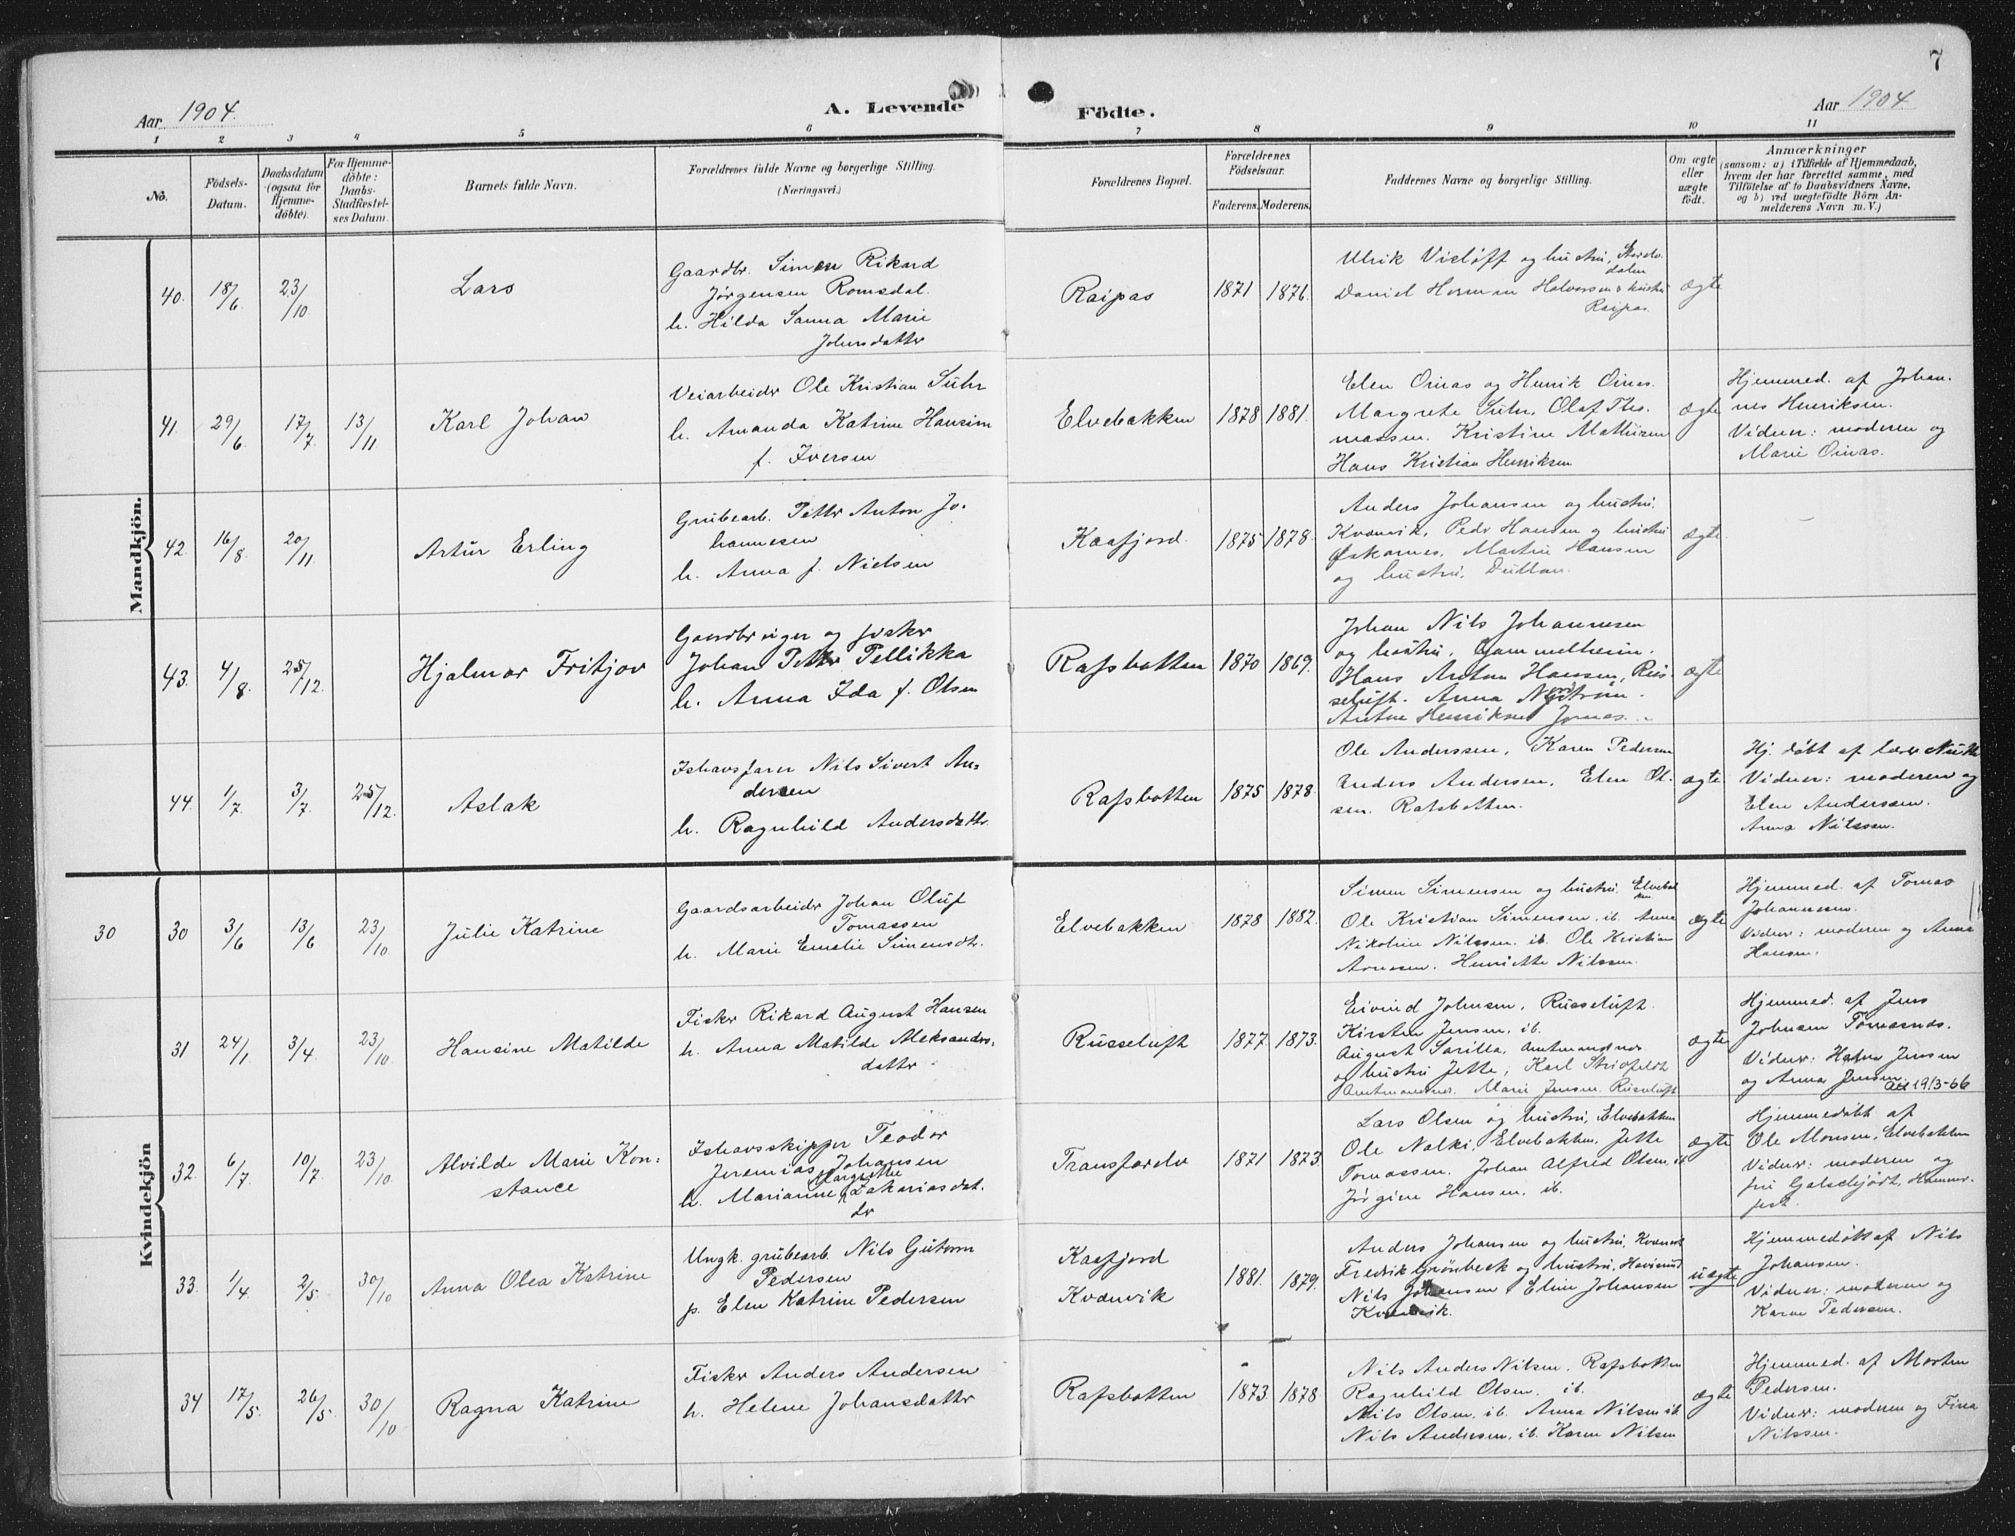 7
Aar 1904.
A. Levende
Födte.
Aar 1904
1 2 3 4 5 6 7 8 9 10 11
No.
Födsels-
Datum.
Daabsdatum
(ogsaa for
Hjemme-
döbte).
For Hjemme-
döbte:
Daabs-
Stadfæstel-
ses Datum.
Barnets fulde Navn.
Forældrenes fulde Navne og borgerlige Stilling.
(Næringsvei.)
Forældrenes Bopæl.
Forældrenes
Födselsaar.
Faderens. Moderens.
Faddernes Navne og borgerlige Stilling.
Om ægte
eller
uægte
födt.
Anmærkninger
(saasom: a) i Tilfælde af Hjemmedaab,
hvem der har forrettet samme, med
Tilföielse af to Daabsvidners Navne,
og b) ved uægtefödte Börn An-
melderens Navn m. V.)
Mandkjön.
40. 18/6 23/10
Lars
Gaardbr. Simon Rikard
Jørgensen Romsdal.
h. Hilda Sanna Marie
Johnsdatter
Raipas
1871 1876.
Ulrik Visløff og hustru,
dalen
Daniel Herman Halvorsen & hustru
Raipas.
ægte
41 29/6 17/7 13/11
Karl Johan
Veiarbeider Ole Kristian Suhr
h. Amanda Katrine Hansine
f. Iversen
Elvebakken
1878 1881.
Elen Oinas og Henrik Oinas.
Margrete Suhr, Olaf Tho-
massen. Kristine Mathisen
Hans Kristian Henriksen
ægte
Hjemmed. af Johan-
nes Henriksen.
Vidner: moderen og
Marie Oinas.
42. 16/8 20/11
Artur Erling
Grubearb. Petter Anton Jo-
hannesen
h. Anna f. Nielsen
Kaafjord.
1875 1878.
Anders Johansen og hustru.
Kvænvik, Peder Hansen og hustru
Øskarnes, Martin Hansen
og hustru,
ægte
43. 4/8. 25/12.
Hjalmar Fritjov
Gaardbruger og fisker
Johan Petter Pellikka
h. Anna Ida f. Olsen
Rafsbotten
1870 1869.
Johan Nils Johannesen
og hustru, Gammelheim.
Hans Anton Hansen, Rus-
seluft. Anna Nystrøm.
Anton Henriksen
ægte
44. 1/7. 3/7 25/12.
Aslak
Ishavsfarer Nils Sivert An-
dersen
h. Ragnhild Andersdatter
Rafsbotten
1875 1878.
Ole Anderssen, Karen Pedersen
Anders Andersen, Elen Ol-
sen. Rafsbotten.
ægte
Hj. døbt af lærer
Vidner: moderen og
Elen Anderssen.
Anna Nilssen.
Kvindekjön
30 30 3/6 13/6 23/10
Julie Katrine
Gaardsarbeider Johan Oluf
Tomassen
h. Marie Emelie Simensdtr.
Elvebakken
1878 1882.
Simen Simensen og hustru, Elvebak
ken
Ole Kristian Simensen, ib. Anna
Nikoline Nilssen. ib. Ole Kristian
Aronsen. Henriette Nilssen.
ægte
Hjemmed. af Tomas
Johannesen.
Vidner: moderen og Anna
Hansen.
31 24/1. 3/4 23/10.
Hansine Matilde
Fisker Rikard August Hansen
h. Anna Matilde Aleksanders-
datter.
Russeluft
1877. 1873.
Eivind Johnsen, Russeluft.
Kirsten Jensen, ib.
August Sarilla, Amtmandsnes
og hustru Jette, Karl Stridfeldt
Amtmandsnes. Marie Jensen Russeluft
ægte
Hjemmed. af Jens
Johnsen Tomasnes.
Vidner: Jensen
og Anna Jensen
Att 1913-66
32. 6/7. 10/7 23/10.
Alvilde Marie Kon-
stance
Ishavsskipper Teodor
Jeremias Johansen
Margrethe
h. Marianne Zakariasdat-
dr
Transfardv
1871 1873
Lars Olsen og hustru, Elvebakken
Ole Nalki, Elvebakken, Jette
Tomassen. Johan Alfred Olsen, ib
Jørgine Hansen, ib.
ægte
Hjemmedøbt af
Ole Monsen, Elvebakken
Vidner: moderen og
fru, Hammer-
fest.
33. 1/4 2/5. 30/10
Anna Olea Katrine
Ungk. grubearb. Nils Gutorm
Pedersen
p. Elen Katrine Pedersen
Kaafjord
Kvænvik
1881. 1879.
Anders Johansen og hustru Kvænvik
Fredrik Grønbeck og hustru,
Nils Johansen, Eline Johansen
Kvænvik.
uægte
Hjemmedøbt af Nils
Johansen.
Vidner: moderen og
Karen Pedersen.
34 17/5. 26/5 30/10
Ragna Katrine
Fisker Anders Andersen
h. Helene Johansdatter
Rafsbotten
1873. 1878
Nils Anders Nilsen. Rafsbotten
Ragnhild Olsen. ib.
Nils Olsen, ib. Anna Nilsen ib.
Nils Andersen, ib. Karen Nilsen
ægte
Hjemmed. af Morten
Pedersen.
Vidner: moderen og Fina
Nilssen.